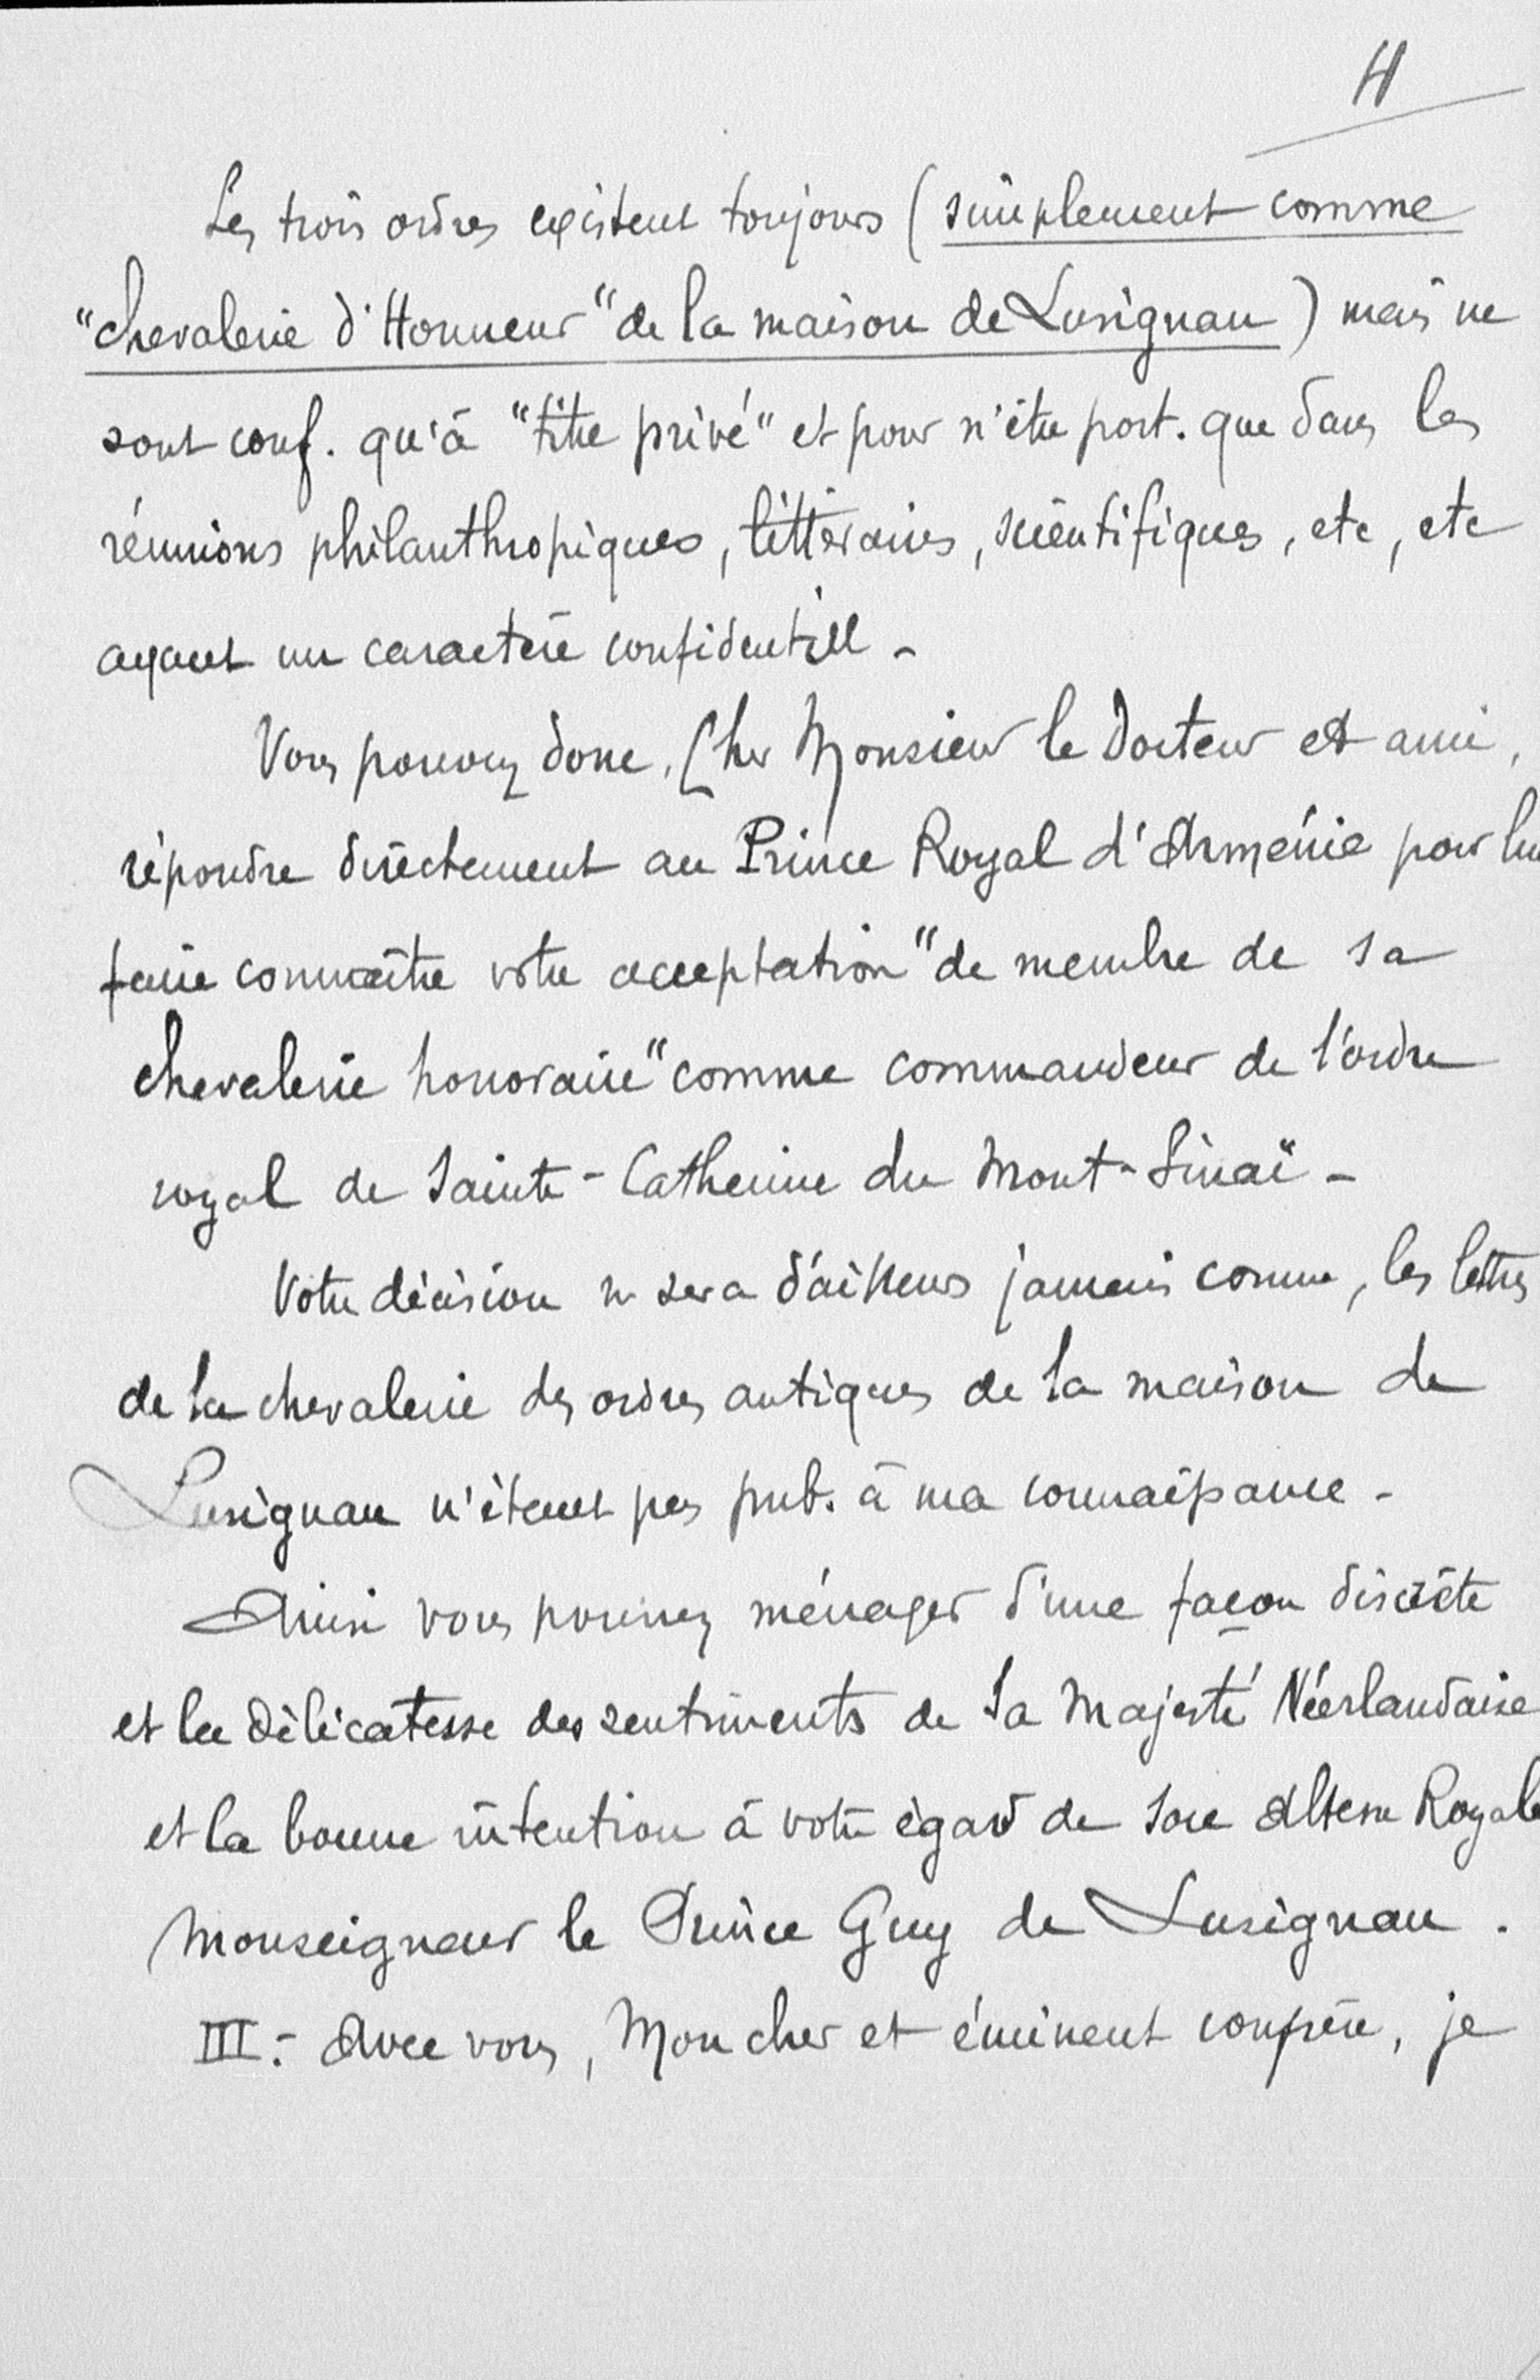 4
Les trois ordres existent toujours (simplement comme
"chevalerie d'Honneur" de la maison de Lusignan) mais ne
sont conf. qu'à "titre privé" et pour n'être port. que dans les
réunions philanthropiques, littéraires, scientifiques, etc, etc
ayant un caractère confidentiel -
Vous pouvez donc, Cher Monsieur le Docteur et ami,
répondre directement au Prince Royal d'Arménie pour lui
faire connaître votre acceptation "de membre de sa
chevalerie honoraire" comme commandeur de l'ordre
royal de Sainte-Catherine du Mont-Sinaï -
Votre décision ne sera d'ailleurs jamais connue, les lettres
de la chevalerie des ordres antiques de la maison de
Lusignan n'étant pas pub. à ma connaissance -
Ainsi vous pourrez ménager d'une façon discrète
et la délicatesse des sentiments de Sa Majesté Néerlandaise
et la bonne intention à votre égard de Son Altesse Royale
Monseigneur le Prince Guy de Lusignan.
III. - Avec vous, Mon cher et éminent confrère, je